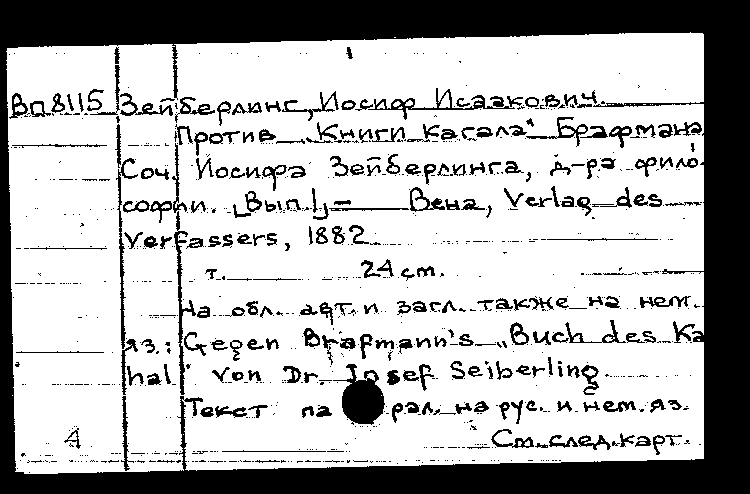 Вп 8115 Зейберлинг, Иосиф Исаакович.
Против „Книги кагала" Брафмана
Соч. Иосифа Зейберлинга, д-ра фило-
софии. [Вып. 1] – Вена, Verlag des
Verfassers, 1882.
т. 24 см.
На обл. авт. и загл. также на нем.
яз.: Gegen Brafmann's „Buch des Ka
hal" von Dr. Josef Seiberling.
Текст па рал. на рус. и нем. яз.
4 См. след. карт.